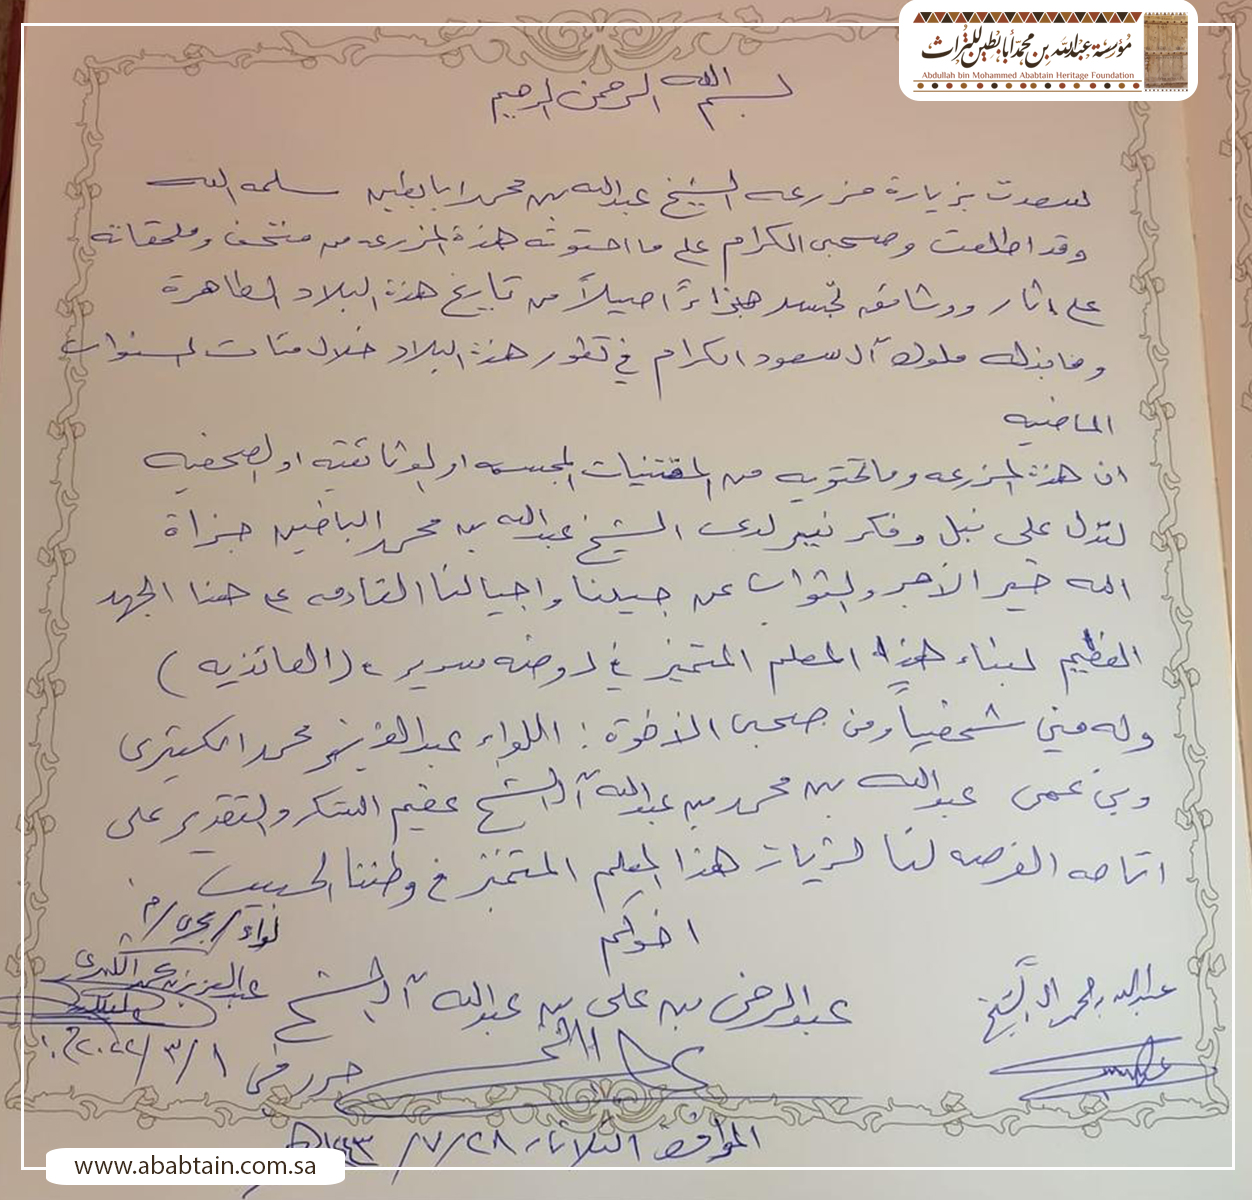 مؤسسة عبدالله بن محمد أبابطين للتراث
Abdullah bin Mohammed Ababtain Heritage Foundation
بسم الله الرحمن الرحيم
لسعدت بزيارة مزرعه الشيخ عبدالله بن محمد ابابطين سلمه الله
وقد اطلعت وصحبي الكرام على ما احتوته هذة المزرعه من متحف وملحقاته
على اثار ووثائق تجسد جزاءً اصيلاً من تاريخ هذة البلاد الطاهرة
وما بذله ملوك آل سعود الكرام في تطور هذة البلاد خلال مئات السنوات
الماضيه
ان هذة المزرعه وماتحتويه من المقتنيات المجسمه او الوثائقيه او الصحفيه
لتدل على نبل وفكر نير لدى الشيخ عبدالله بن محمد البابطين جزاة
الله خير الأجر والثواب عن جيلنا واجيالنا القادمه على هذا الجهد
العظيم لبناء هذا المعلم المتميز في روضه سدير (العائذيه)
وله مني شخصياً ومن صحبي الأخوة : اللواء عبدالعزيز محمد الكثيري
وبن عمي عبدالله بن محمد بن عبدالله آل الشيخ عظيم الشكر والتقدير على
اتاحه الفرصه لنا لزيارة هذا المعلم المتميز في وطننا الحبيب
اخوكم
لواء/بحري/م
عبدالله بن محمد ال الشيخ
عبدالرحمن بن علي بن عبدالله آل الشيخ
عبدالعزيز بن محمد الكثيري
حرر في ١/٣/٢٠٢٢م
الموافق الثلاثاء ٢٨/٧/١٤٤٣هـ
www.ababtain.com.sa